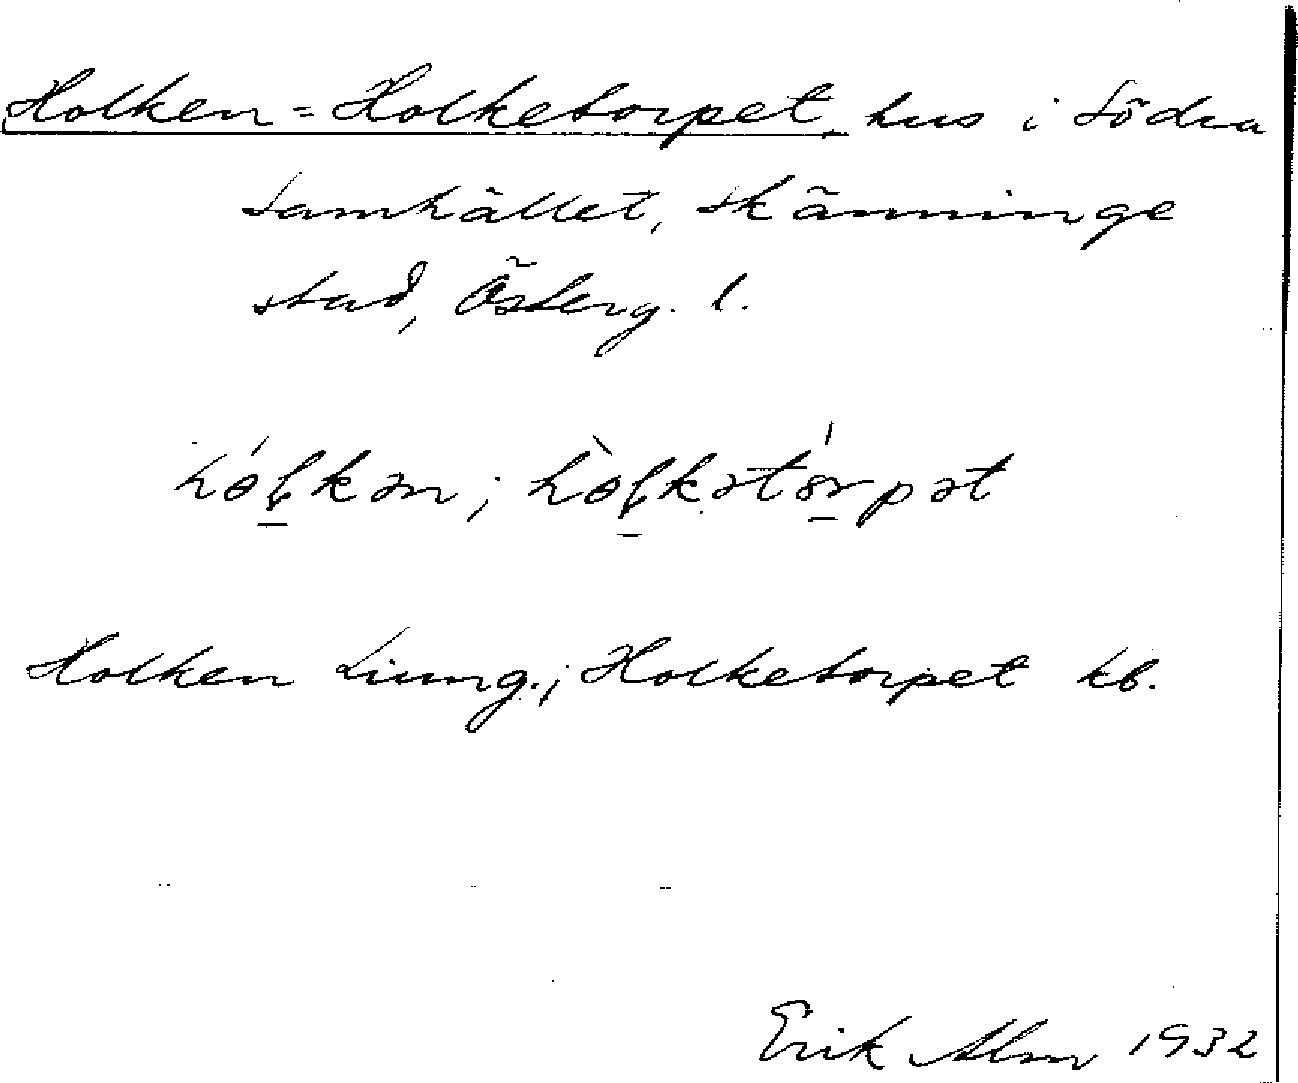 Holken = Holketorpet, hus i Södra
Samhället, Skänninge
stad, Österg. l.
hólkən; hòlkətórpət
Holken Liung.; Holketorpet kb.
Erik Alm 1932